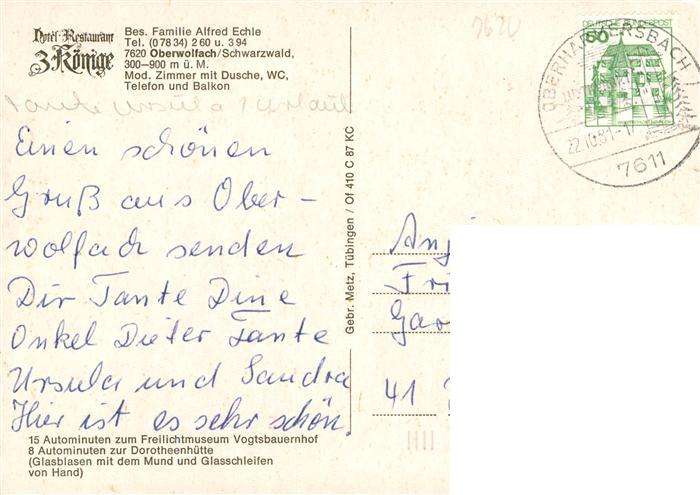 Hotel-Restaurant
3 Könige
Bes. Familie Alfred Echle
Tel. (0 78 34) 2 60 u. 3 94
7620 Oberwolfach/Schwarzwald,
300–900 m ü. M.
Mod. Zimmer mit Dusche, WC,
Telefon und Balkon
Tante Ursula Urlaub
Einen schönen
Gruß aus Ober-
wolfach senden
Dir Tante Dine
Onkel Dieter Tante
Ursula und Sandra
Hier ist es sehr schön.
15 Autominuten zum Freilichtmuseum Vogtsbauernhof
8 Autominuten zur Dorotheenhütte
(Glasblasen mit dem Mund und Glasschleifen
von Hand)
Gebr. Metz, Tübingen / Of 410 C 87 KC
7620
DEUTSCHE BUNDESPOST
50
OBERHARMERSBACH
22.10.81-17
7611
Anj
Fri
Gar
41